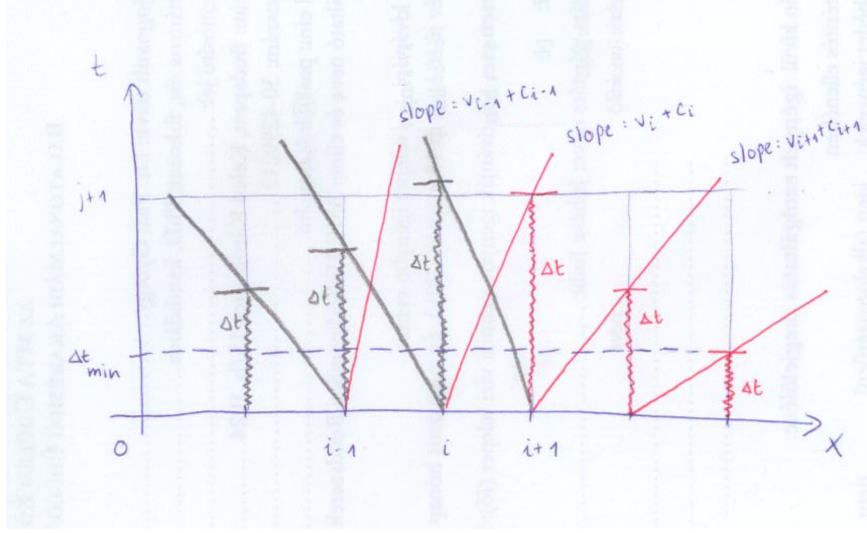 t
slope = v_{i-1} + c_{i-1}
slope = v_i + c_i
slope = v_{i+1} + c_{i+1}
j+1
Δt
Δt
Δt
Δt
Δt
Δt
Δt min
0
i-1
i
i+1
x